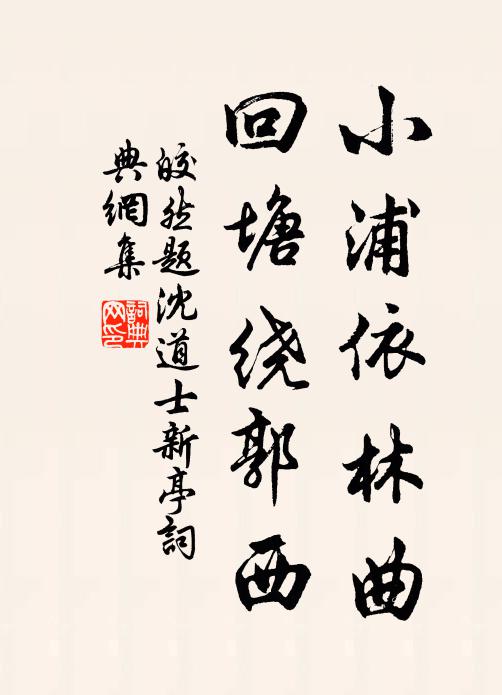 小浦依林曲
回塘绕郭西
皎然题沈道士新亭詞
典網集
詞典
网印